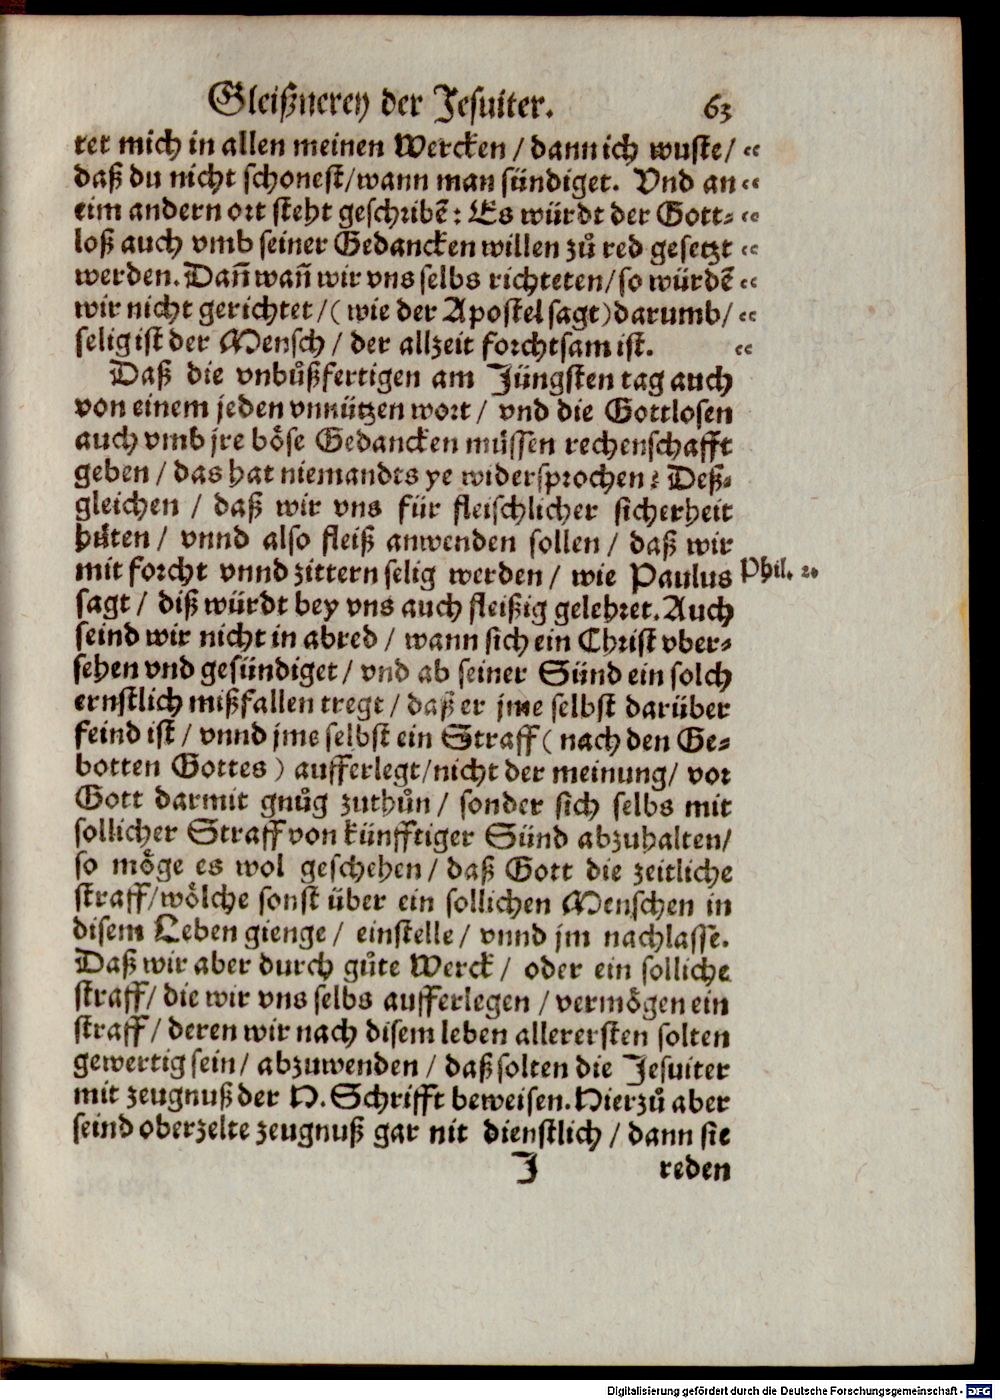 Gleißnerey der Jesuiter. 63
ret mich in allen meinen Wercken / dann ich wuste / “
daß du nicht schonest / wann man sündiget. Vnd an “
eim andern ort steht geschribẽ: Es würdt der Gott⸗ “
loß auch vmb seiner Gedancken willen zů red gesetzt “
werden. Dañ wañ wir vns selbs richteten / so würdẽ “
wir nicht gerichtet / ( wie der Apostel sagt) darumb / “
selig ist der Mensch / der allzeit forchtsam ist. “
Daß die vnbůßfertigen am Jüngsten tag auch
von einem jeden vnnützen wort / vnd die Gottlosen
auch vmb jre böse Gedancken müssen rechenschafft
geben / das hat niemandts ye widersprochen: Deß⸗
gleichen / daß wir vns für fleischlicher sicherheit
hüten / vnnd also fleiß anwenden sollen / daß wir
mit forcht vnnd zittern selig werden / wie Paulus Phil. 2.
sagt / diß würdt bey vns auch fleißig gelehret. Auch
seind wir nicht in abred / wann sich ein Christ vber⸗
sehen vnd gesündiget / vnd ab seiner Sünd ein solch
ernstlich mißfallen tregt / daß er jme selbst darüber
feind ist / vnnd jme selbst ein Straff ( nach den Ge⸗
botten Gottes ) aufferlegt / nicht der meinung / vor
Gott darmit gnůg zuthůn / sonder sich selbs mit
sollicher Straff von künfftiger Sünd abzuhalten /
so möge es wol geschehen / daß Gott die zeitliche
straff / wölche sonst über ein sollichen Menschen in
disem Leben gienge / einstelle / vnnd jm nachlasse.
Daß wir aber durch gůte Werck / oder ein solliche
straff / die wir vns selbs aufferlegen / vermögen ein
straff / deren wir nach disem leben allerersten solten
gewertig sein / abzuwenden / daß solten die Jesuiter
mit zeugnuß der H. Schrifft beweisen. Hierzů aber
seind oberzelte zeugnuß gar nit dienstlich / dann sie
J reden
Digitalisierung gefördert durch die Deutsche Forschungsgemeinschaft - DFG